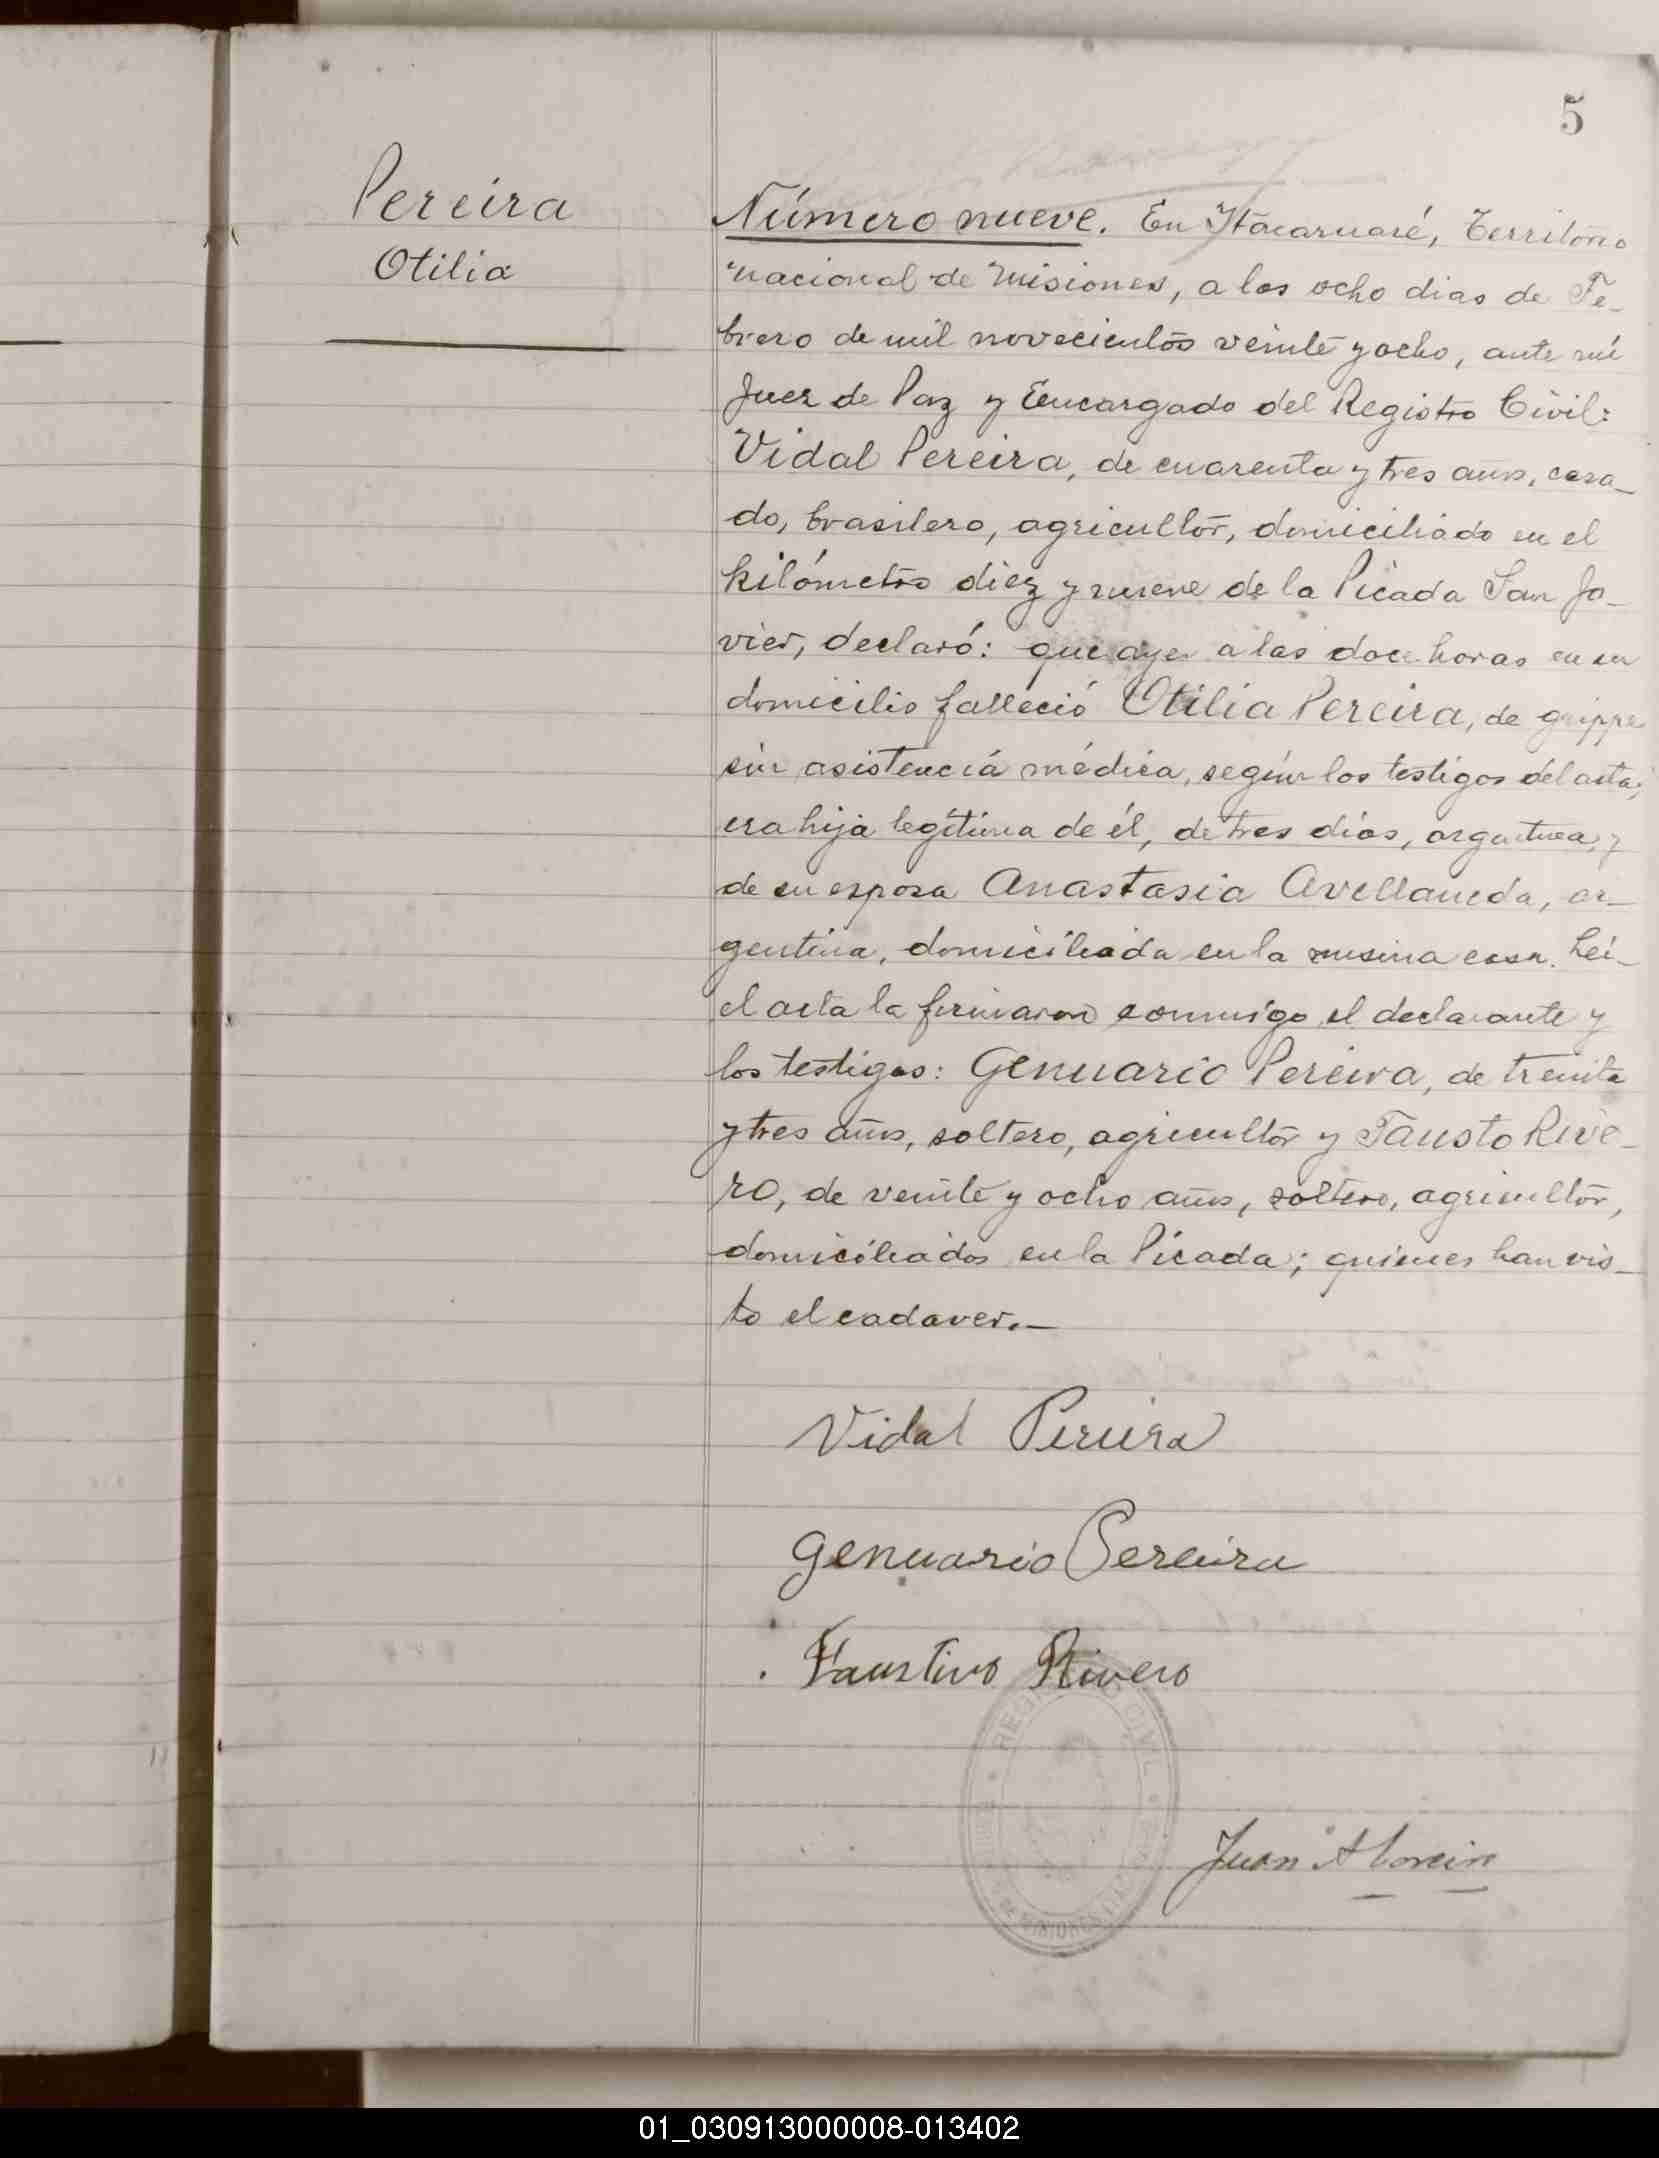 5
Pereira
Otilia
Número nueve. En Itacaruaré, Territorio
nacional de Misiones, a los ocho dias de Fe-
brero de mil novecientos veinte y ocho, ante mí
Juez de Paz y Encargado del Registro Civil:
Vidal Pereira, de cuarenta y tres años, casa-
do, brasilero, agricultor, domiciliado en el
kilómetro diez y nueve de la Picada San Ja-
vier, declaró: que ayer a las doce horas en su
domicilio falleció Otilia Pereira, de grippe
sin asistencia médica, según los testigos del acta;
era hija legítima de él, de tres dias, argentina, y
de su esposa Anastasia Avellaneda, ar-
gentina, domiciliada en la misma casa. Lei-
el acta la firmaron conmigo el declarante y
los testigos: Genuario Pereira, de treinta
y tres años, soltero, agricultor y Fausto Rive-
ro, de veinte y ocho años, soltero, agricultor,
domiciliados en la Picada; quienes han vis-
to el cadaver.-
Vidal Pereira
Genuario Pereira
Faustino Rivero
CIVIL
Juan
01_030913000008-013402